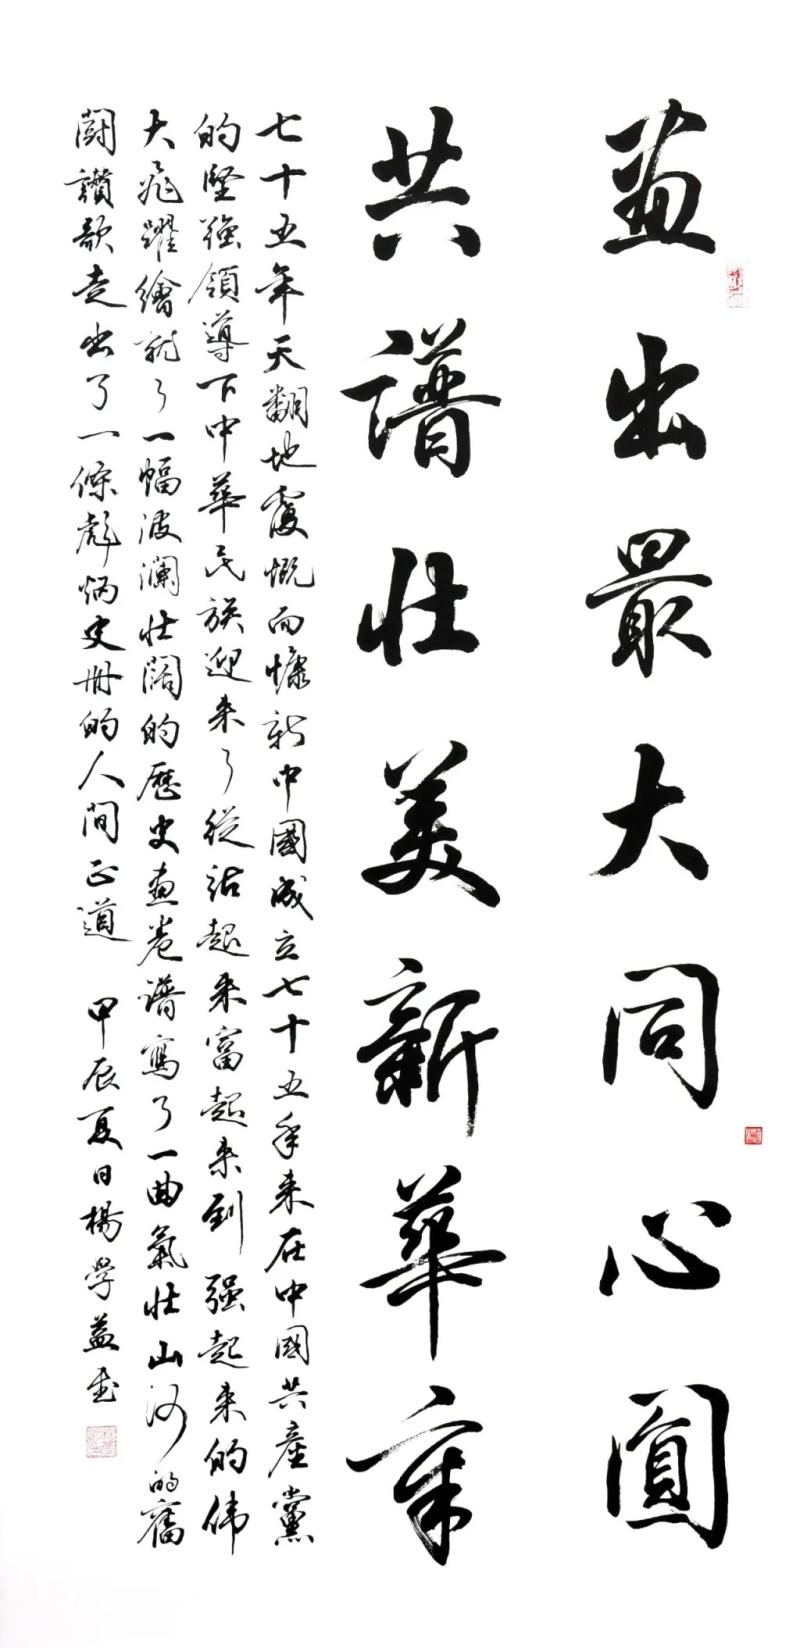 畫出最大同心圓
共譜壮美新華章
七十五年天翻地覆慨而慷新中國成立七十五年来在中國共產黨
的堅强領導下中華民族迎来了從站起来富起来到强起来的伟
大飛躍繪就了一幅波瀾壮闊的歷史畫卷譜寫了一曲氣壮山河的奮
鬪讚歌走出了一條彪炳史冊的人間正道 甲辰夏日楊学益書